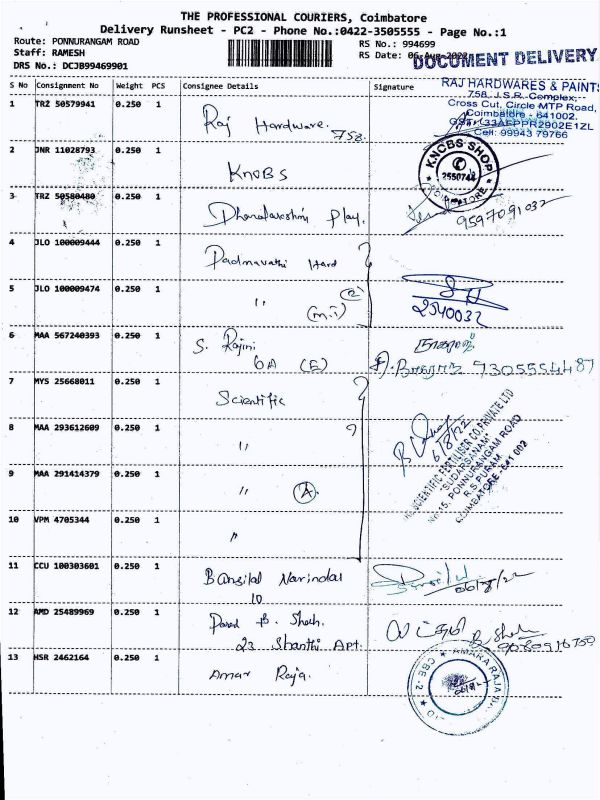 THE PROFESSIONAL COURIERS, Coimbatore
Delivery Runsheet - PC2 - Phone No.:0422-3505555 - Page No.:1
Route: PONNURANGAM ROAD
Staff: RAMESH
DRS No.: DCJB99469901
RS No.: 994699
RS Date: 06-Aug-2022
DOCUMENT DELIVERY
S No Consignment No Weight PCS Consignee Details Signature
RAJ HARDWARES & PAINTS
758, J.S.R. Complex,
Cross Cut, Circle MTP Road,
Coimbatore - 641002.
Cell: 99943 79766
1 TRZ 50579941 0.250 1 Raj Hardware. 758.
2 JNR 11028793 0.250 1 KNOBS
KNOBS SHOP
2550744
COIMBATORE
3 TRZ 50580480 0.250 1 Dhanalakshmi Play. 9597091032
4 JLO 100009444 0.250 1 Padmavathi Hard
5 JLO 100009474 0.250 1 " (2)
(m.i) 2540032
6 MAA 567240393 0.250 1 S. Rajini
6A (E) 7305554487
7 MYS 25668011 0.250 1 Scientific
8 MAA 293612609 0.250 1 "
6/8/22
THE SCIENTIFIC FERTILISER CO.PRIVATE LTD
"SUDARSANAM"
No.15, PONNURANGAM ROAD
R.S.PURAM
COIMBATORE-641 002
9 MAA 291414379 0.250 1 " (A)
10 VPM 4705344 0.250 1 "
11 CCU 100303601 0.250 1 Bansilal Narindas
10 06/8/22
12 AMD 25489969 0.250 1 B. Shah. B. Shah
23 Shanthi Apt.
13 HSR 2462164 0.250 1 Amar Raja.
AMARA RAJA
CBE-2